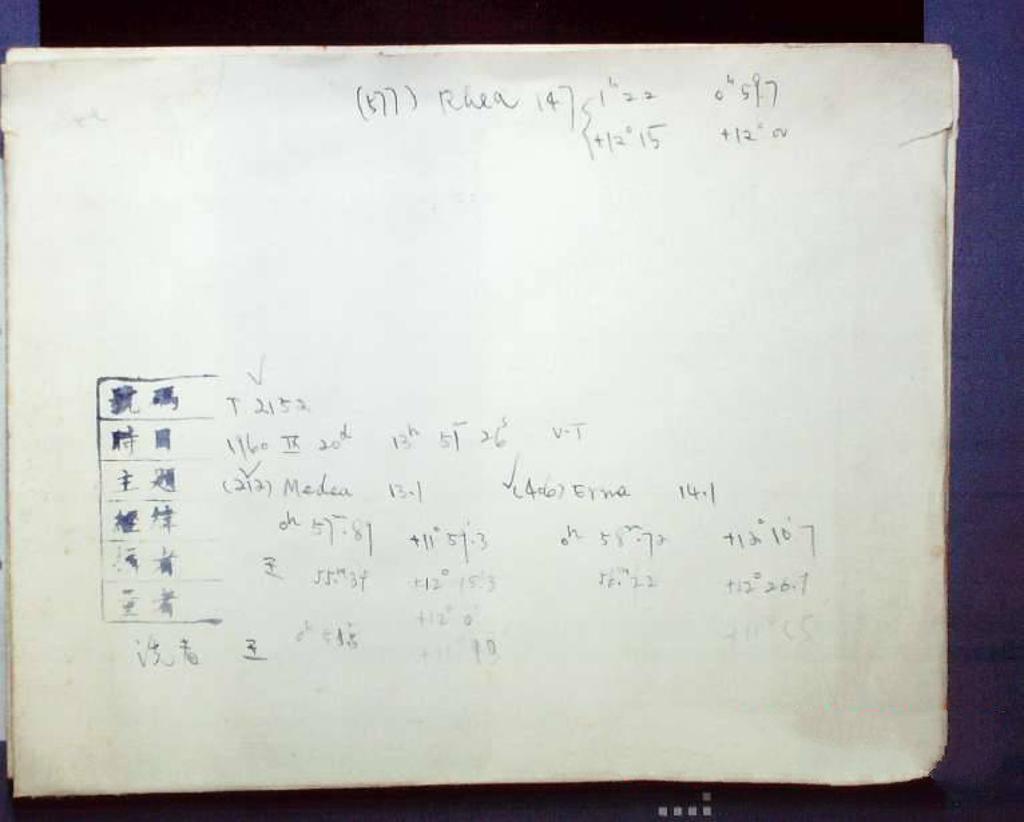 (577) Rhea 147 { 1ʰ 22 0ʰ 59.7
+12° 15 +12° 00
號碼 T 2152
時日 1960 IX 20ᵈ 13ʰ 51ᵐ 26ˢ U.T
主題 (212) Medea 13.1 (406) Erna 14.1
經緯 0ʰ 57ᵐ.81 +11° 51'.3 0ʰ 58ᵐ.72 +12° 10'.7
者 王 55ᵐ.39 +12° 15'.3 56ᵐ.22 +12° 26.7
者 +12° 0'
洗者 王 0ʰ +11°